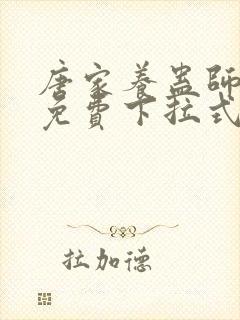 唐家养蛊师
免費下拉式
拉加德